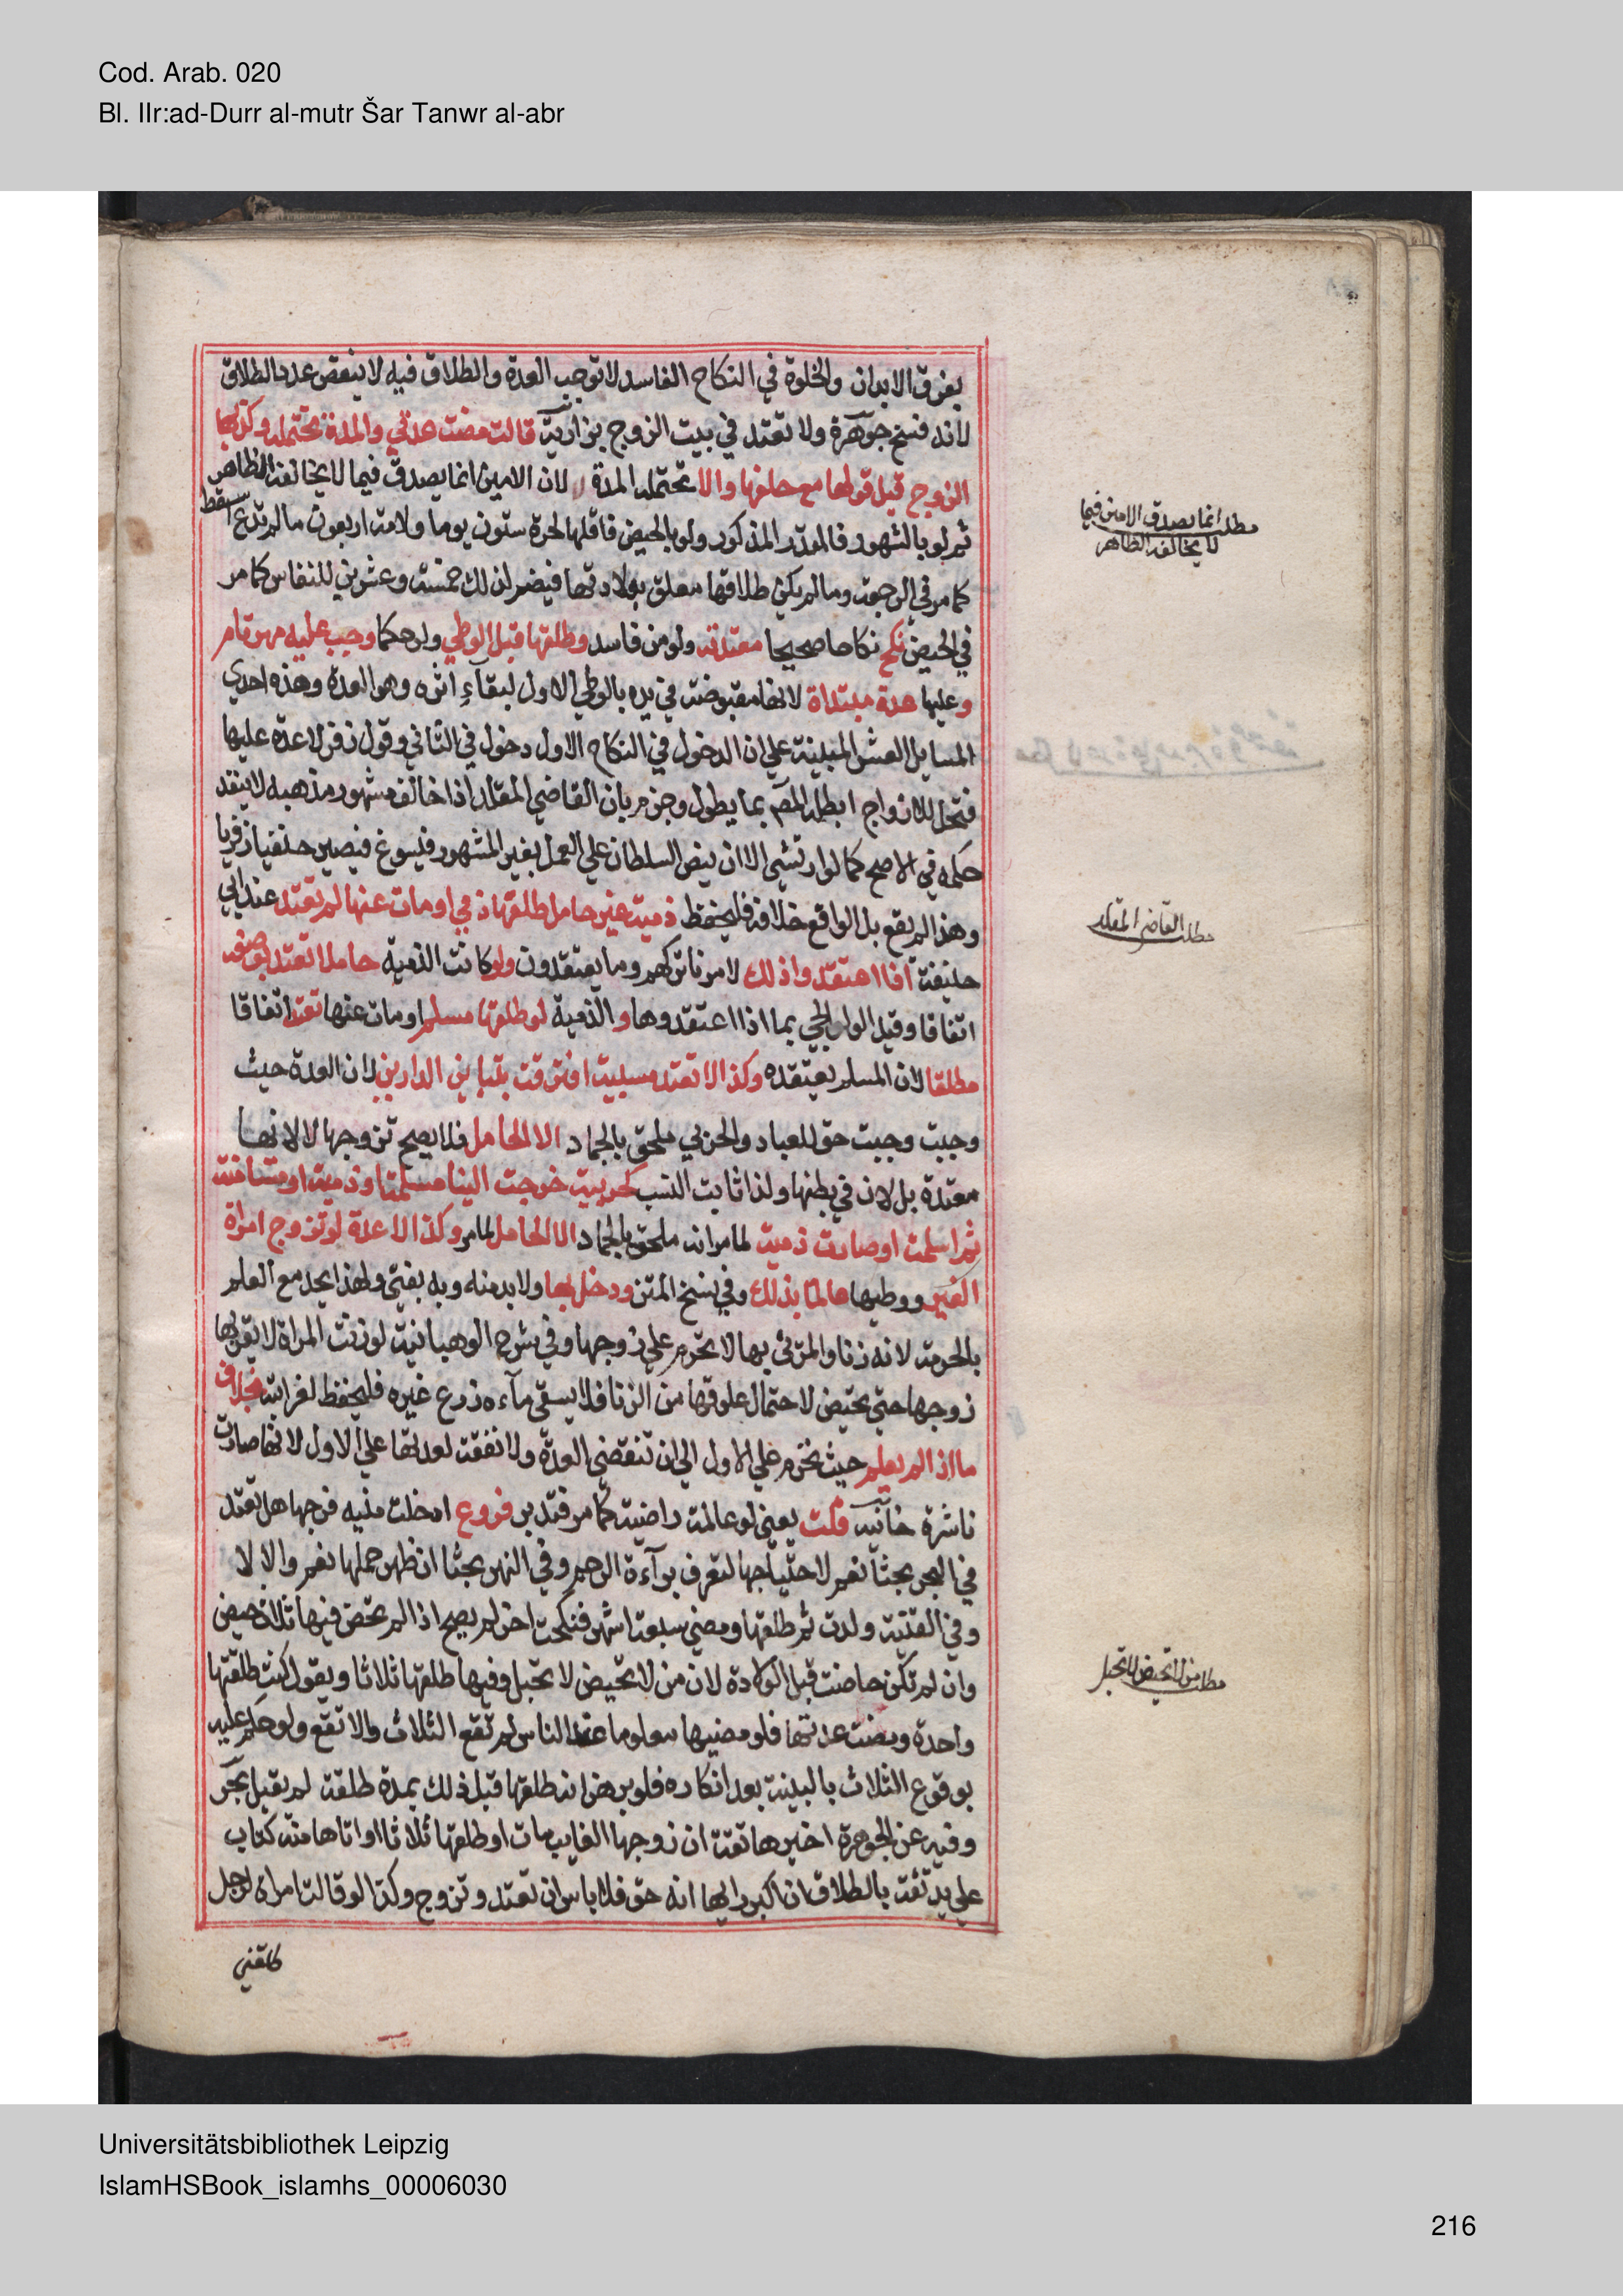 Cod. Arab. 020
Bl. IIr:ad-Durr al-mutr Šar Tanwr al-abr
بفرق الابدان والخلوة في النكاح الفاسد لا توجب العدة والطلاق فيه لا ينقص عدد الطلاق
لانه فسخ جوهرة ولا تعتد في بيت الزوج بزازية قالت مضت عدتي والمدة تحتمله وكذبها
الزوج قبل قولها مع حلفها والا تحتمله المدة لا لان الامين انما يصدق فيما لا يخالفه الظاهر
ثم لو بالشهور فالمقدر المذكور ولو بالحيض فاقلها لحرة ستون يوما ولامة اربعون ما لم تدع سقط
كما مر في الرجعة وما لم يكن طلاقها معلق بولادتها فيضم لذلك خمسة وعشرين للنفاس كما مر
في الحيض نكح نكاحا صحيحا معتدته ولو من فاسد وطلقها قبل الوطي ولو حكما وجب عليه مهر تام
وعليها عدة مبتداة لانها مقبوضة في يده بالوطي الاول لبقآء اثره وهو العدة وهذه احدي
المسايل العشر المبينة علي ان الدخول في النكاح الاول دخول في الثاني وقول زفر لا عدة عليها
فتحل للازواج ابطله المص بما يطول وجزم بان القاضي المقلد اذا خالف مشهور مذهبه لا ينفد
حكمه في الاصح كما لو ارتشي الا ان ينص السلطان علي العمل بغير المشهور فيسوغ فيصير حنفيا زفريا
وهذا لم يقع بل الواقع خلافه فليحفظ ذمية غير حامل طلقها ذمي او مات عنها لم تعتد عند ابي
حنيفة اذا اعتقدوا ذلك لامرنا بتركهم وما يعتقدون ولو كانت الذمية حاملا تعتد بوضعه
اتفاقا وقيد الولوالجي بما اذا اعتقدوها والذمية لو طلقها مسلم او مات عنها تعتد اتفاقا
مطلقا لان المسلم يعتقده وكذا لا تعتد مسبية افترقت بتباين الدارين لان العدة حيث
وجبت وجبت حق للعباد والحربي ملحق بالجماد الا الحامل فلا يصح تزوجها لا لانها
معتدة بل لان في بطنها ولذا ثابت النسب كحربية خرجت الينا مسلمة او ذمية او مستامنة
ثم اسلمت او صارت ذمية لما مر انه ملحق بالجماد الا الحامل لما مر وكذا لا عدة لو تزوج امراة
الغير ووطيها عالما بذلك وفي نسخ المتن ودخل بها ولا بد منه وبه يفتي ولهذا يحد مع العلم
بالحرمة لانه زنا والمزني بها لا تحرم علي زوجها وفي شرح الوهبانية لو زنت المراة لا يقربها
زوجها حتي تحيض لاحتمال علوقها من الزنا فلا يسقي مآءه زرع غيره فليحفظ لغرابته بخلاف
ما اذا لم يعلم حيث تحرم علي الاول الي ان تنقضي العدة ولا نفقة لعدتها علي الاول لانها صارت
ناشزة خانية قلت يعني لو عالمة راضية كما مر فتدبر فروع ادخلت منيه فرجها هل تعتد
في البحر بحثا نعم لاحتياجها لتعرف برآءة الرحم وفي النهر بحثا ان ظهر حملها نعم والا لا
وفي القنية ولدت ثم طلقها ومضي سبعة اشهر فنكحت اخر لم يصح اذا لم تحض فيها ثلاث حيض
وان لم تكن حاضت قبل الولادة لان من لا تحيض لا تحبل وفيها طلقها ثلاثا ويقول كنت طلقتها
واحدة ومضت عدتها فلو مضيها معلوما عند الناس لم تقع الثلاث والا تقع ولو حكم عليه
بوقوع الثلاث بالبينة بعد انكاره فلو برهن انه طلقها قبل ذلك بمدة طلقة لم يقبل بحر
وفيه عن الجوهرة اخبرها ثقة ان زوجها الغايب مات او طلقها ثلاثا او اتاها منه كتاب
علي يد ثقة بالطلاق ان اكبر رايها انه حق فلا باس ان تعتد وتزوج وكذا لو قالت امراة لرجل
طلقني
مطلب انما يصدق الامين فيما
لا يخالفه الظاهر
مطلب القاضي المقلد
مطلب من لا تحيض لا تحبل
Universitätsbibliothek Leipzig
IslamHSBook_islamhs_00006030
216